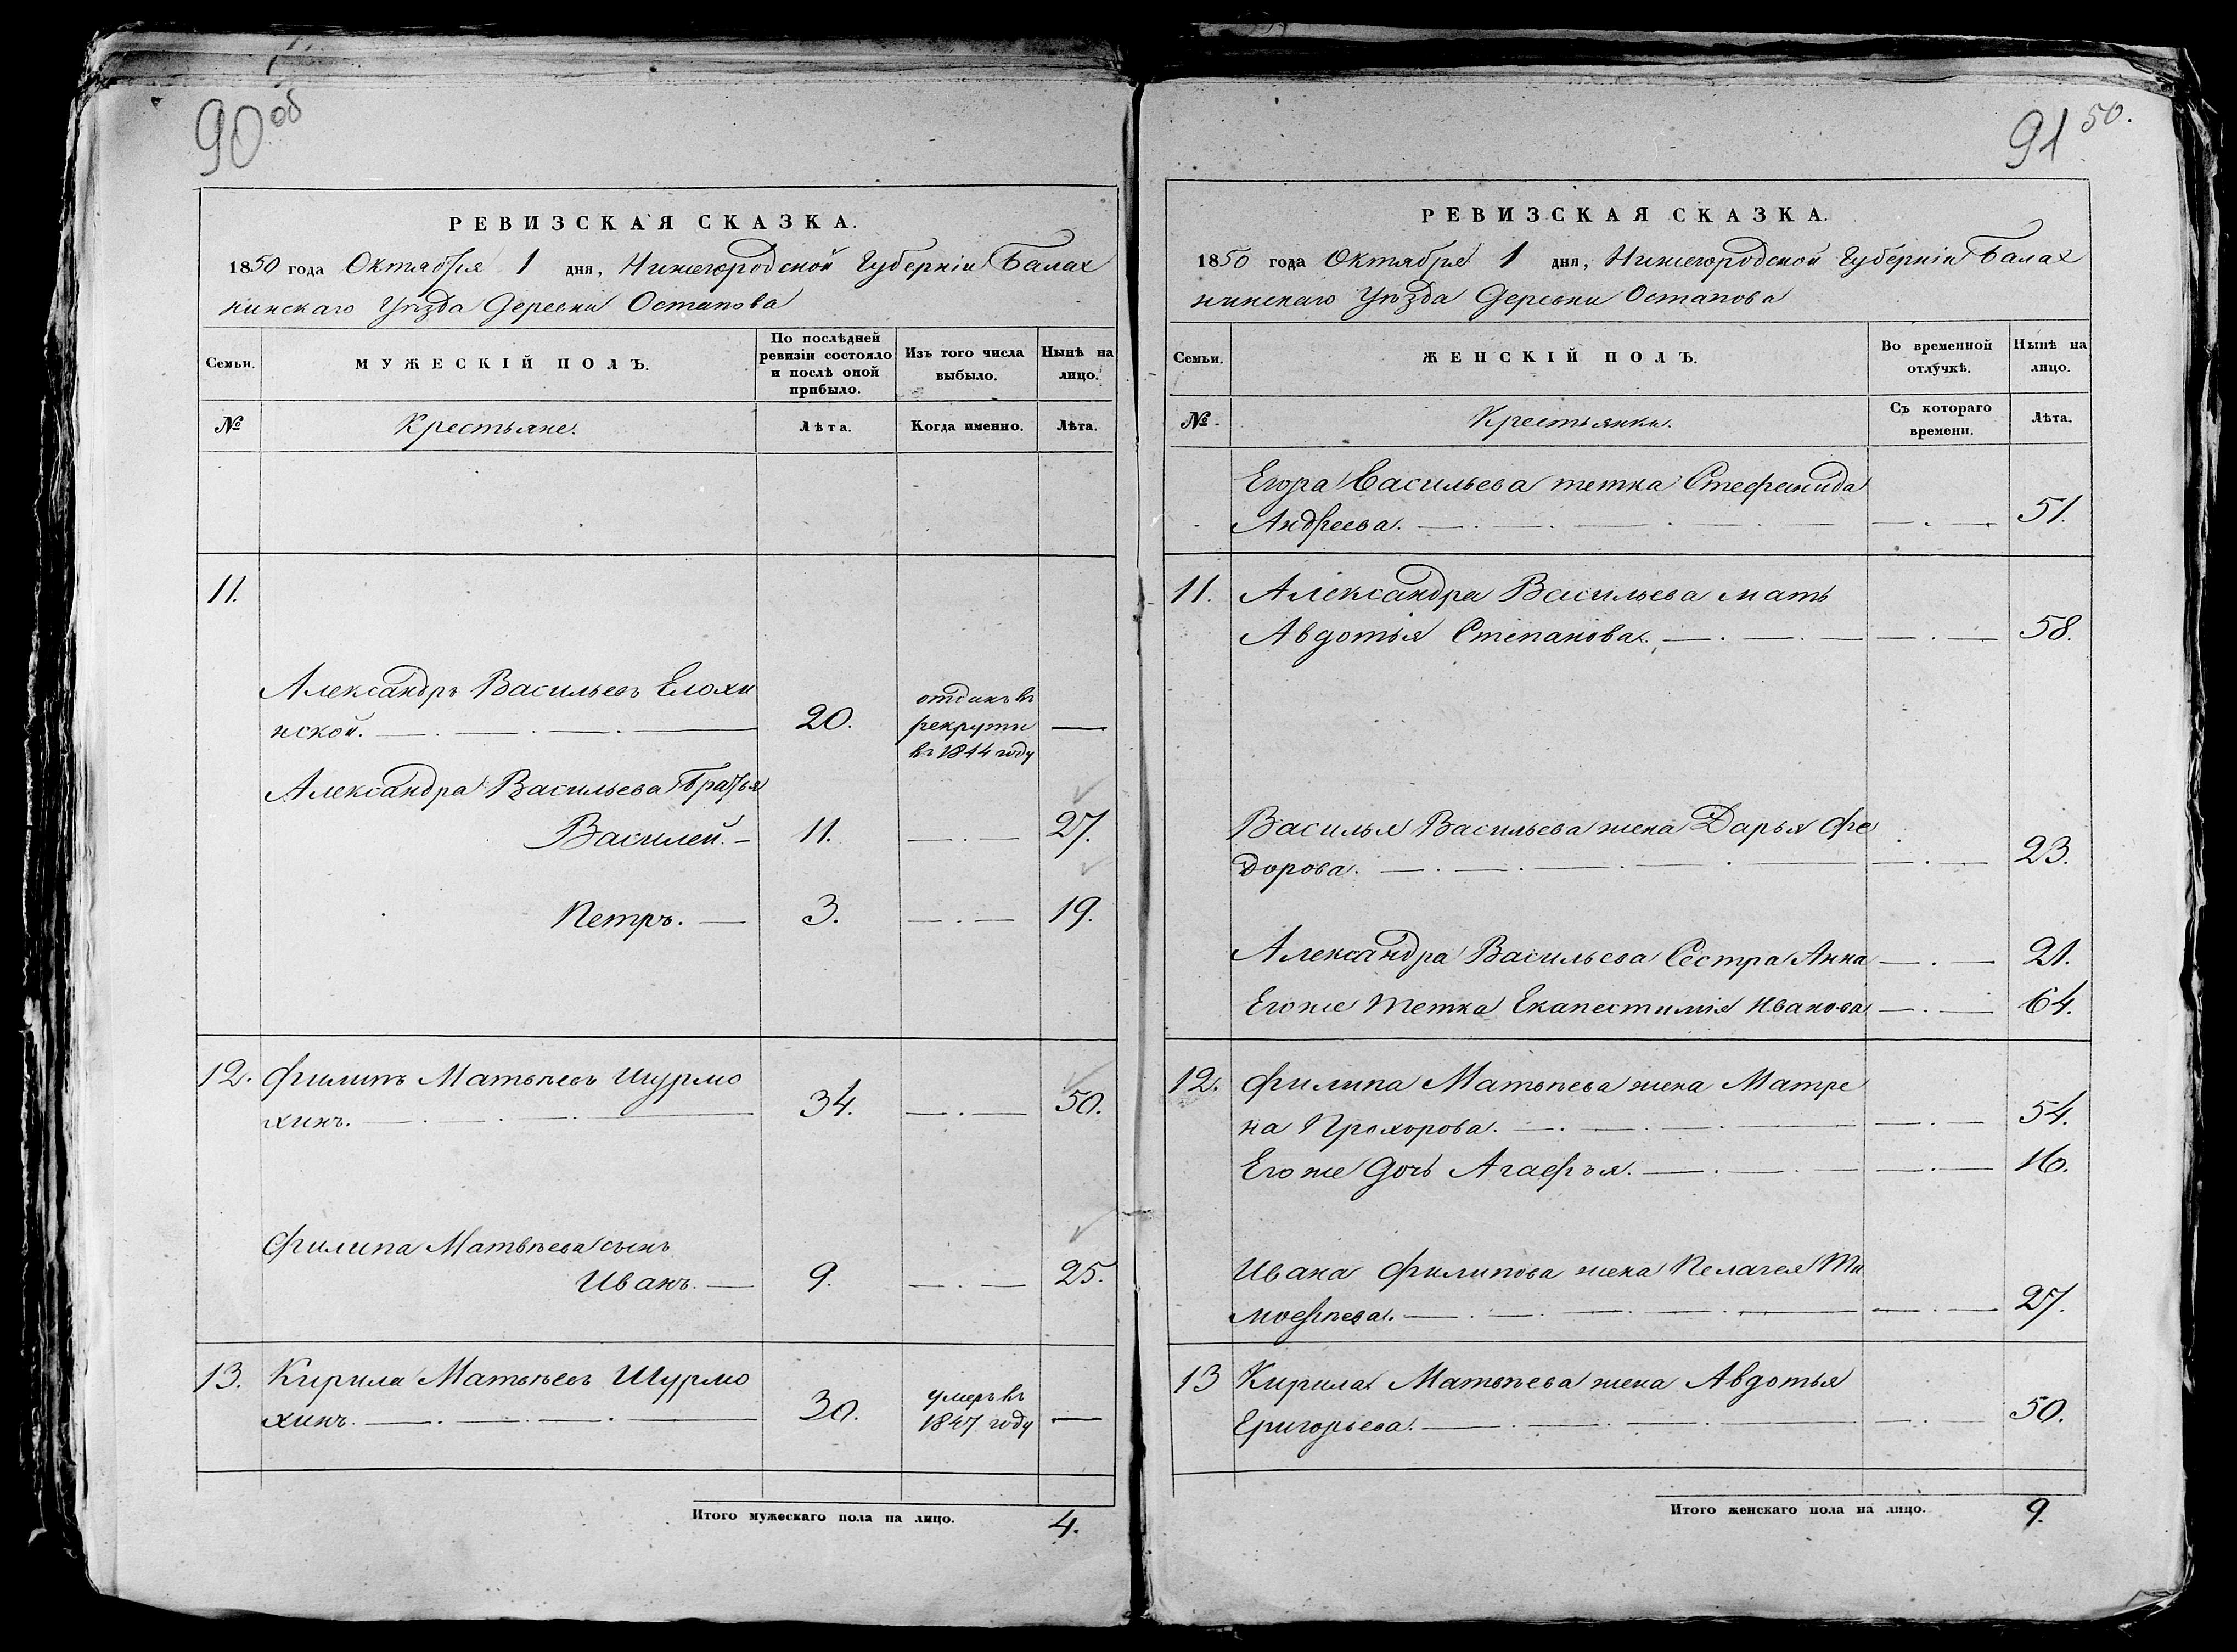 90 об
РЕВИЗСКАЯ СКАЗКА.
1850 года Октября 1 дня, Нижегородской Губернiи Балах
нинскаго Уѣзда Деревни Остапова
Семьи.
МУЖЕСКIЙ ПОЛЪ.
По послѣдней
ревизiи состояло
и послѣ оной
прибыло.
Изъ того числа
выбыло.
Нынѣ на
лицо.
№
Крестьяне.
Лѣта.
Когда именно.
Лѣта.
11.
Александръ Васильевъ Елохи
нской. 20. отданъ въ
рекруты
въ 1844 году
Александра Васильева Братья
Василей. 11. 27.
Петръ. 3. 19.
12. Филипъ Матвѣевъ Шурмо
хинъ. 34. 50.
Филипа Матвѣева сынъ
Иванъ. 9. 25.
13. Кирила Матвѣевъ Шурмо
хинъ. 30. умеръ въ
1847 году
Итого мужескаго пола на лицо. 4.
91 50.
РЕВИЗСКАЯ СКАЗКА.
1850 года Октября 1 дня, Нижегородской Губернiи Балах
нинскаго Уѣзда Деревни Остапова
Семьи.
ЖЕНСКIЙ ПОЛЪ.
Во временной
отлучкѣ.
Нынѣ на
лицо.
№
Крестьянки.
Съ котораго
времени.
Лѣта.
Егора Васильева тетка Стефанида
Андреева. 51.
11. Александра Васильева мать
Авдотья Степанова. 58.
Василья Васильева жена Дарья Фе
дорова. 23.
Александра Васильева Сестра Анна 21.
Егоже тетка Екапестимiя Иванова 64.
12. Филипа Матвѣева жена Матре
на Прохорова. 54.
Егоже дочь Агафья. 16.
Ивана Филипова жена Пелагея Ти
мофѣева. 27.
13 Кирила Матвѣева жена Авдотья
Григорьева. 50.
Итого женскаго пола на лицо. 9.